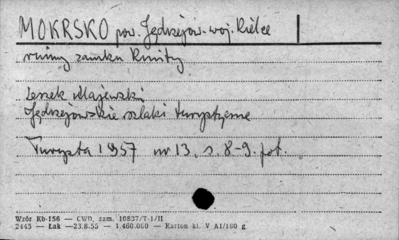 MOKRSKO pow. Jędrzejów. woj. Kielce
ruiny zamku Kmity
Leszek Majewski
Jędrzejowskie szlaki turystyczne
Turysta 1957 nr 13, s. 8-9. fot.
Wzór Kb-156 — CWD, zam. 10837/T-1/II
2445 — Łak —23.8.55 — 1.460.000 — Karton kl. V A1/180 g